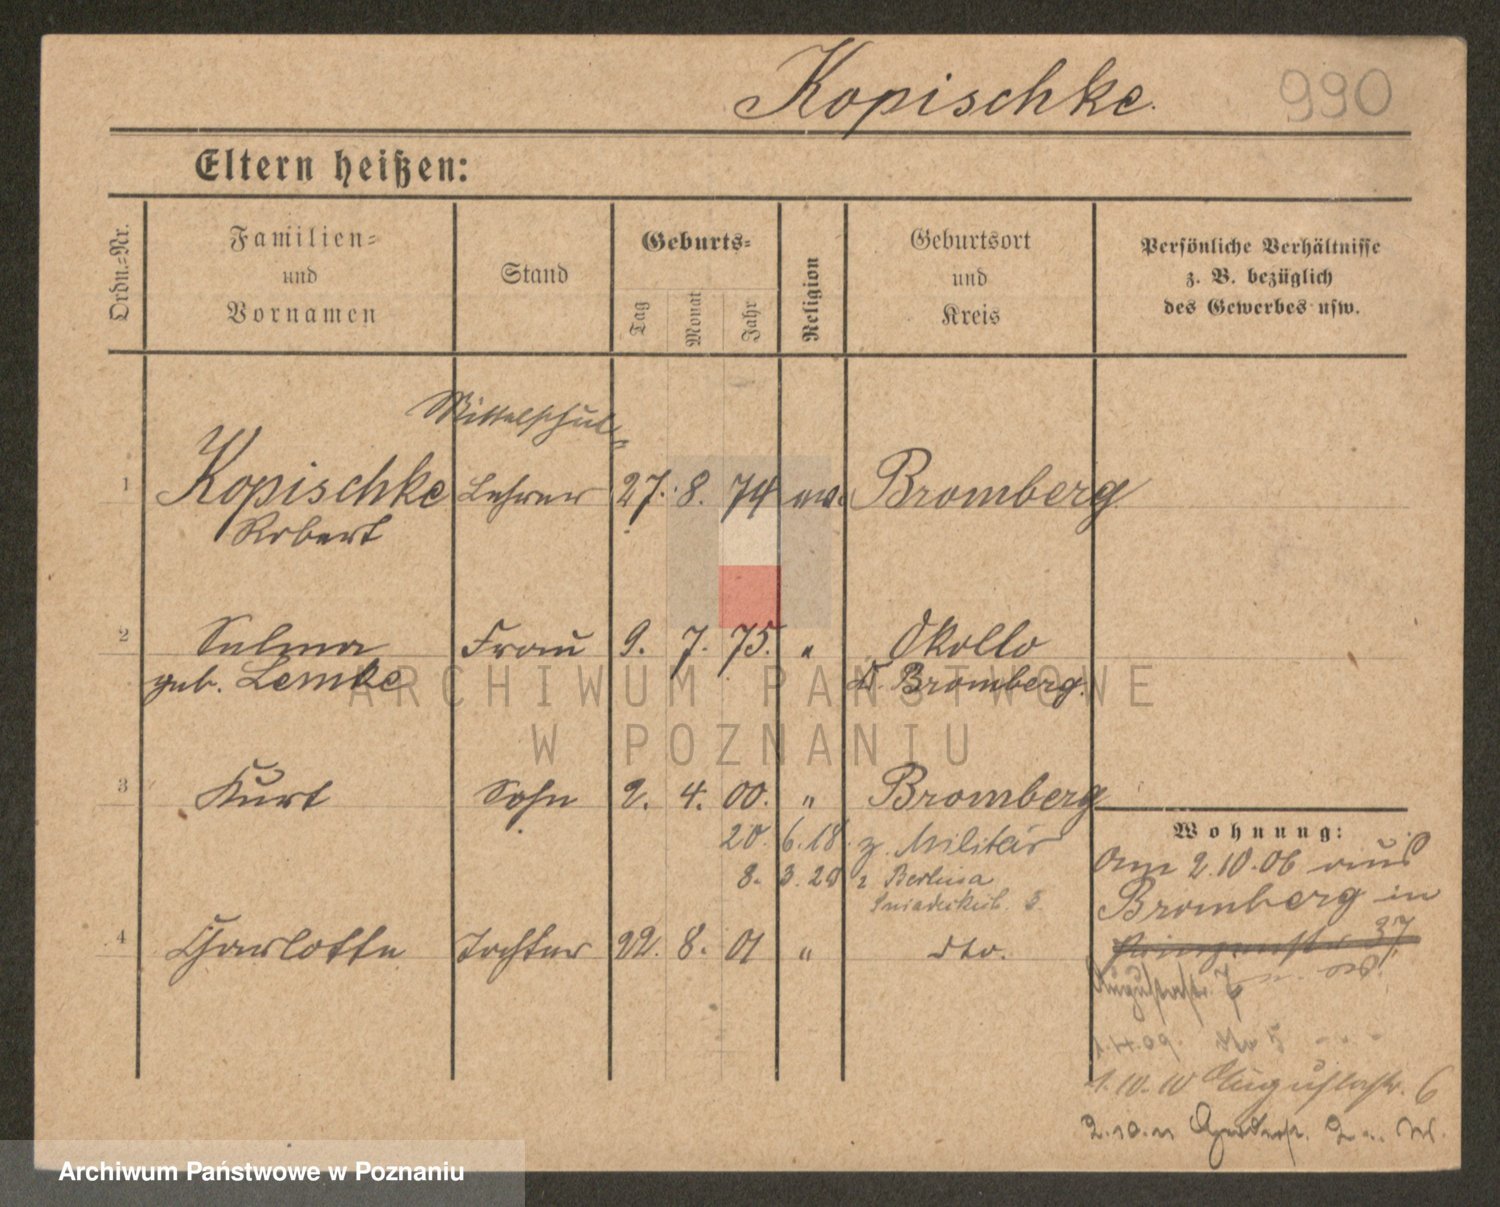 Kopischke.
990
Eltern heißen:
Ordn.-Nr.
Familien-
und
Vornamen
Stand
Geburts-
Tag
Monat
Jahr
Religion
Geburtsort
und
Kreis
Persönliche Verhältnisse
z. B. bezüglich
des Gewerbes usw.
Mittelschul-
1 Kopischke Lehrer 27. 8. 74 ev. Bromberg
Robert
2 Selma Frau 9. 7. 75. " Okollo
geb. Lemke Bromberg.
ARCHIWUM PAŃSTWOWE
W POZNANIU
3 Kurt Sohn 2. 4. 00. " Bromberg
20. 6. 18. z. Militär
8. 3. 20
4 Charlotte Tochter 22. 8. 01 " dto.
Wohnung:
Am 2.10.06 aus
Bromberg in
37
Augustastr.
1.4.09.
1.10.10 Augustastr. 6
2.10.11
Archiwum Państwowe w Poznaniu